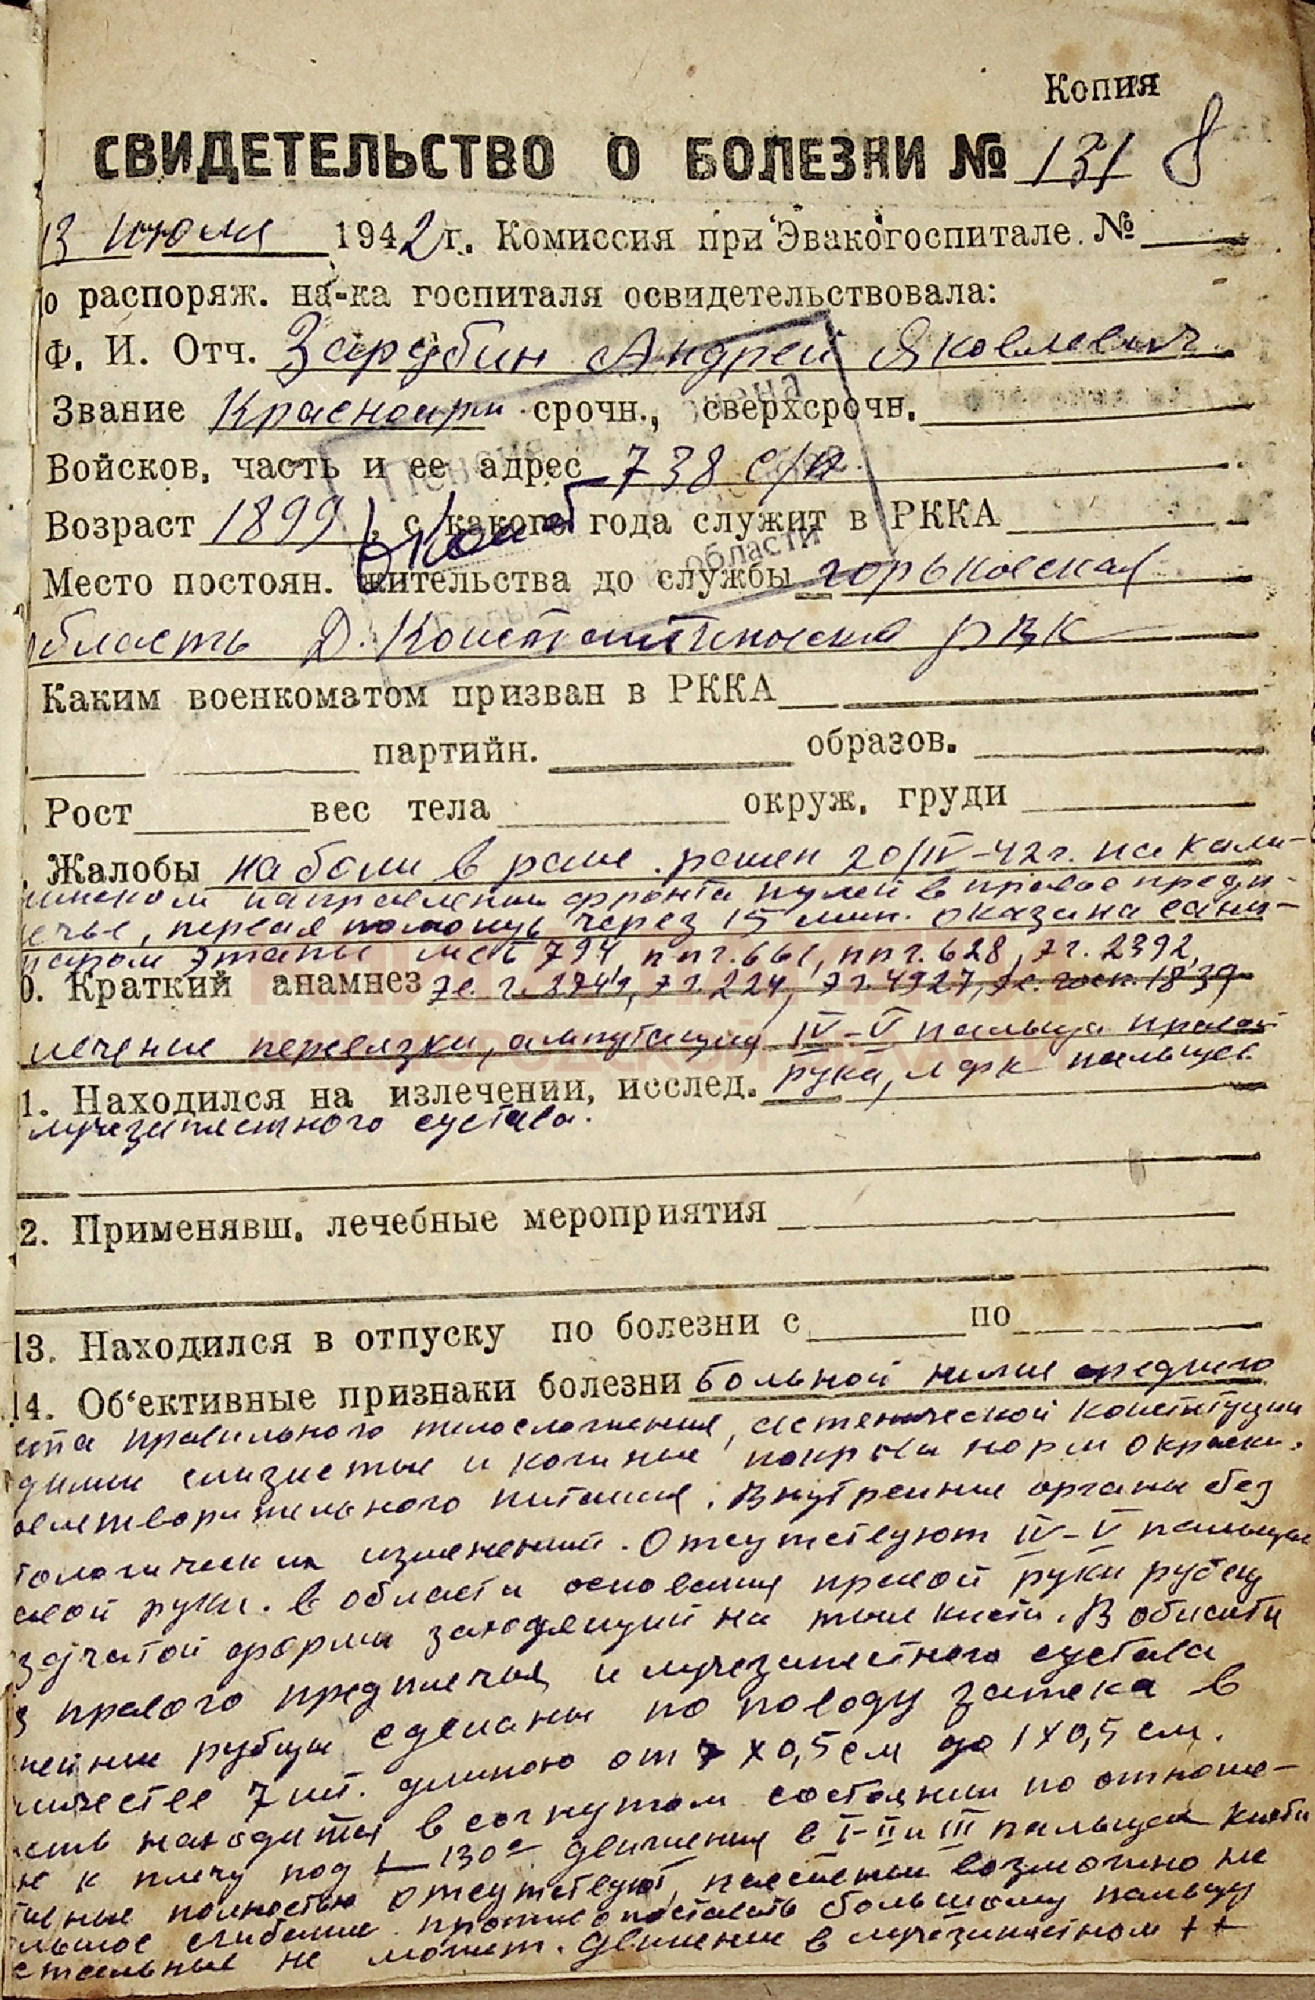 Копия
СВИДЕТЕЛЬСТВО О БОЛЕЗНИ № 131 8
13 июля 1942 г. Комиссия при Эвакогоспитале №
о распоряж. на-ка госпиталя освидетельствовала:
Ф. И. Отч. Зарубин Андрей Яковлевич
Звание Красноарм срочн., сверхсрочн.
Войсков, часть и ее адрес 738 с/п.
Возраст 1899 , с какого года служит в РККА
Место постоян. жительства до службы горьковская
область Д. Константиновский РВК
Каким военкоматом призван в РККА
партийн. образов.
Рост вес тела окруж, груди
Жалобы на боли в ране. ранен 20/IV-42г. на Кали-
нинском направлении фронта пулей в правое предп-
лечье, первая помощь через 15 мин. оказана сани-
таром этапы мсб 794, ппг. 661, ппг. 628, эг. 2392,
0. Краткий анамнез эг. 224, эг. 4927, 1839
лечение перевязки, ампутация IV-V пальца правой
1. Находился на излечении, исслед. рука, лфк пальцев
лучезапястного сустава.
2. Применявш. лечебные мероприятия
13. Находился в отпуску по болезни с по
14. Об'ективные признаки болезни больной ниже среднего
оста правильного телосложения, астенической конституции
димые слизистые и кожные покровы норм окраски.
овлетворительного питания. Внутренние органы без
тологических изменений. Отсутствуют IV-V пальцы
авой руки. в области основания правой руки рубец
зойчатой формы заходящий на тыл кисти. В области
з правого предплечья и лучезапястного сустава
нейные рубцы сделаны по поводу затека в
личестве 7 шт. длиною от 7 х 0,5 см до 1 х 0,5 см.
исть находится в согнутом состоянии по отноше-
не к плечу под 130° движения в I-II и III пальцах кисти
тивные полностью отсутствуют, пассивные возможно не
льшое сгибание противопоставить большому пальцу
стальные не может. Движение в лучезапястном